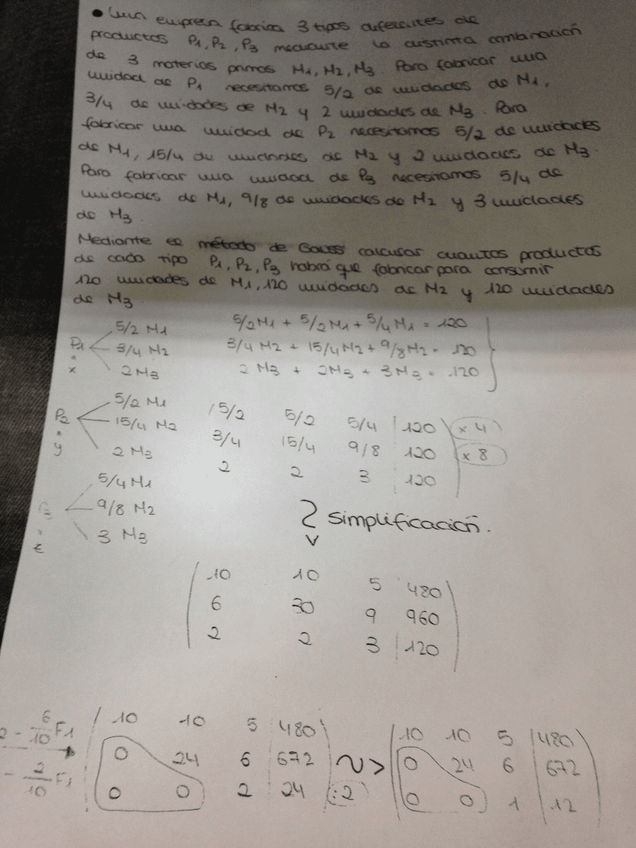 • Una empresa fabrica 3 tipos diferentes de
productos P1, P2, P3 mediante la distinta combinación
de 3 materias primas M1, M2, M3. Para fabricar una
unidad de P1 necesitamos 5/2 de unidades de M1,
3/4 de unidades de M2 y 2 unidades de M3. Para
fabricar una unidad de P2 necesitamos 5/2 de unidades
de M1, 15/4 de unidades de M2 y 2 unidades de M3.
Para fabricar una unidad de P3 necesitamos 5/4 de
unidades de M1, 9/8 de unidades de M2 y 3 unidades
de M3.
Mediante el método de Gauss calcular cuantos productos
de cada tipo P1, P2, P3 habrá que fabricar para consumir
120 unidades de M1, 120 unidades de M2 y 120 unidades
de M3
5/2 M1 5/2M1 + 5/2M1 + 5/4M1 = 120
P1 3/4 M2 3/4 M2 + 15/4M2 + 9/8M2 = 120
x 2M3 2 M3 + 2M3 + 3M3 = 120
5/2 M1
P2 15/4 M2 5/2 5/2 5/4 120 x 4
y 2 M3 3/4 15/4 9/8 120 x 8
2 2 3 120
5/4 M1
P3 9/8 M2
z 3 M3
simplificación.
10 10 5 480
6 30 9 960
2 2 3 120
2 - 6/10 F1 10 10 5 480 10 10 5 480
0 24 6 672 ~> 0 24 6 672
- 2/10 F1 0 0 2 24 :2 0 0 1 12